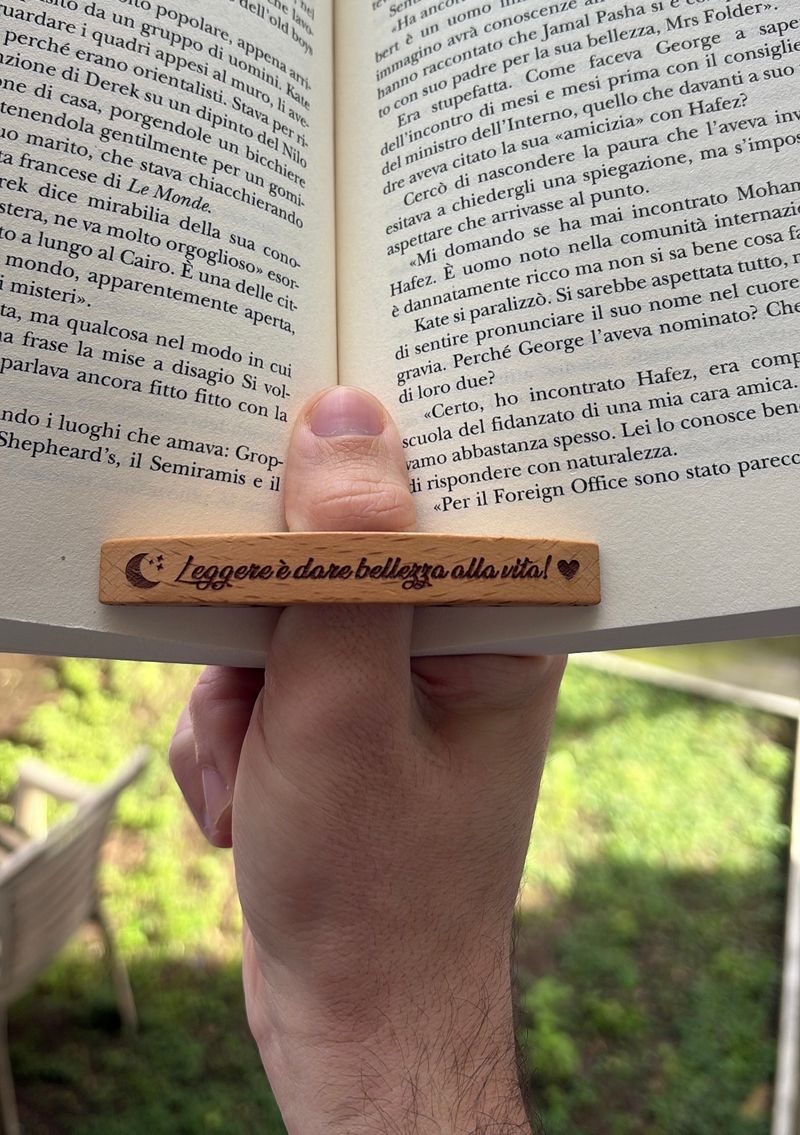 molto popolare, appena arri-
da un gruppo di uomini. Kate
guardare i quadri appesi al muro, li ave-
perché erano orientalisti. Stava per ri-
di Derek su un dipinto del Nilo
di casa, porgendole un bicchiere
tenendola gentilmente per un gomi-
marito, che stava chiacchierando
francese di Le Monde.
dice mirabilia della sua cono-
ne va molto orgoglioso» esor-
a lungo al Cairo. È una delle cit-
mondo, apparentemente aperta,
misteri».
ma qualcosa nel modo in cui
frase la mise a disagio Si vol-
parlava ancora fitto fitto con la
i luoghi che amava: Grop-
Shepheard's, il Semiramis e il
«Ha
bert è un uomo
immagino avrà conoscenze
hanno raccontato che Jamal Pasha si è
to con suo padre per la sua bellezza, Mrs Folder».
Era stupefatta. Come faceva George a sape
dell'incontro di mesi e mesi prima con il consiglie
del ministro dell'Interno, quello che davanti a suo
dre aveva citato la sua «amicizia» con Hafez?
Cercò di nascondere la paura che l'aveva inv
esitava a chiedergli una spiegazione, ma s'impos
aspettare che arrivasse al punto.
«Mi domando se ha mai incontrato Moham
Hafez. È uomo noto nella comunità internazi
è dannatamente ricco ma non si sa bene cosa fa
Kate si paralizzò. Si sarebbe aspettata tutto,
di sentire pronunciare il suo nome nel cuore
gravia. Perché George l'aveva nominato? Che
di loro due?
«Certo, ho incontrato Hafez, era comp
scuola del fidanzato di una mia cara amica.
vamo abbastanza spesso. Lei lo conosce ben
di rispondere con naturalezza.
«Per il Foreign Office sono stato parecc
Leggere è dare bellezza alla vita!